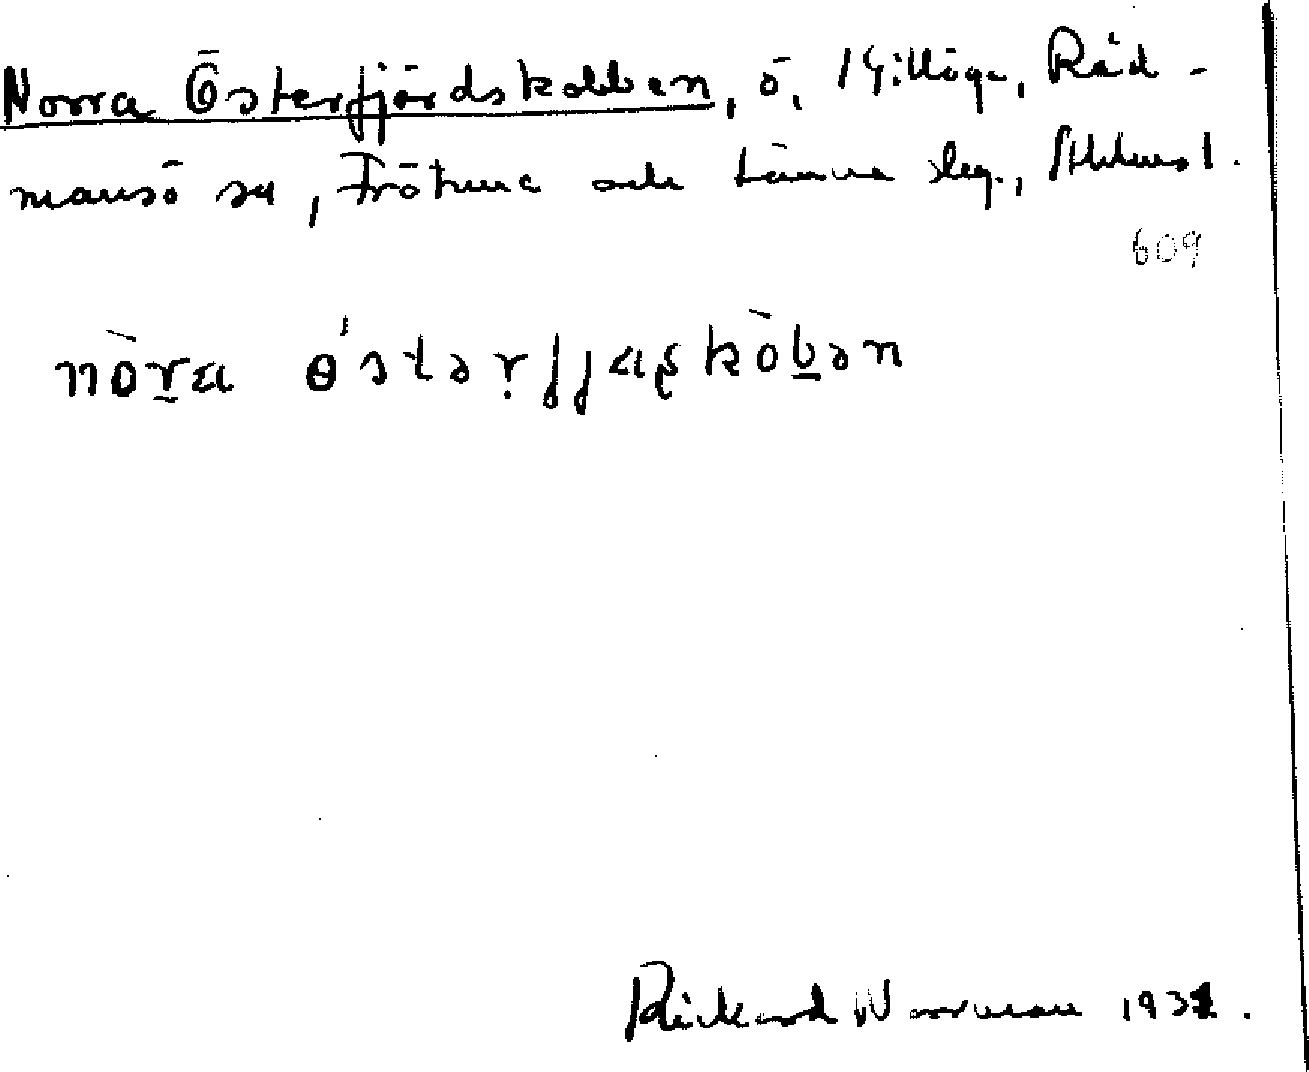 Norra Österfjärdskobben, ö, Gillöga, Råd-
mansö sn, Frötuna och Länna skg., Sthlms l.
609
nòra ö́stərfjaʂkòbən
Rickard Norrman 193